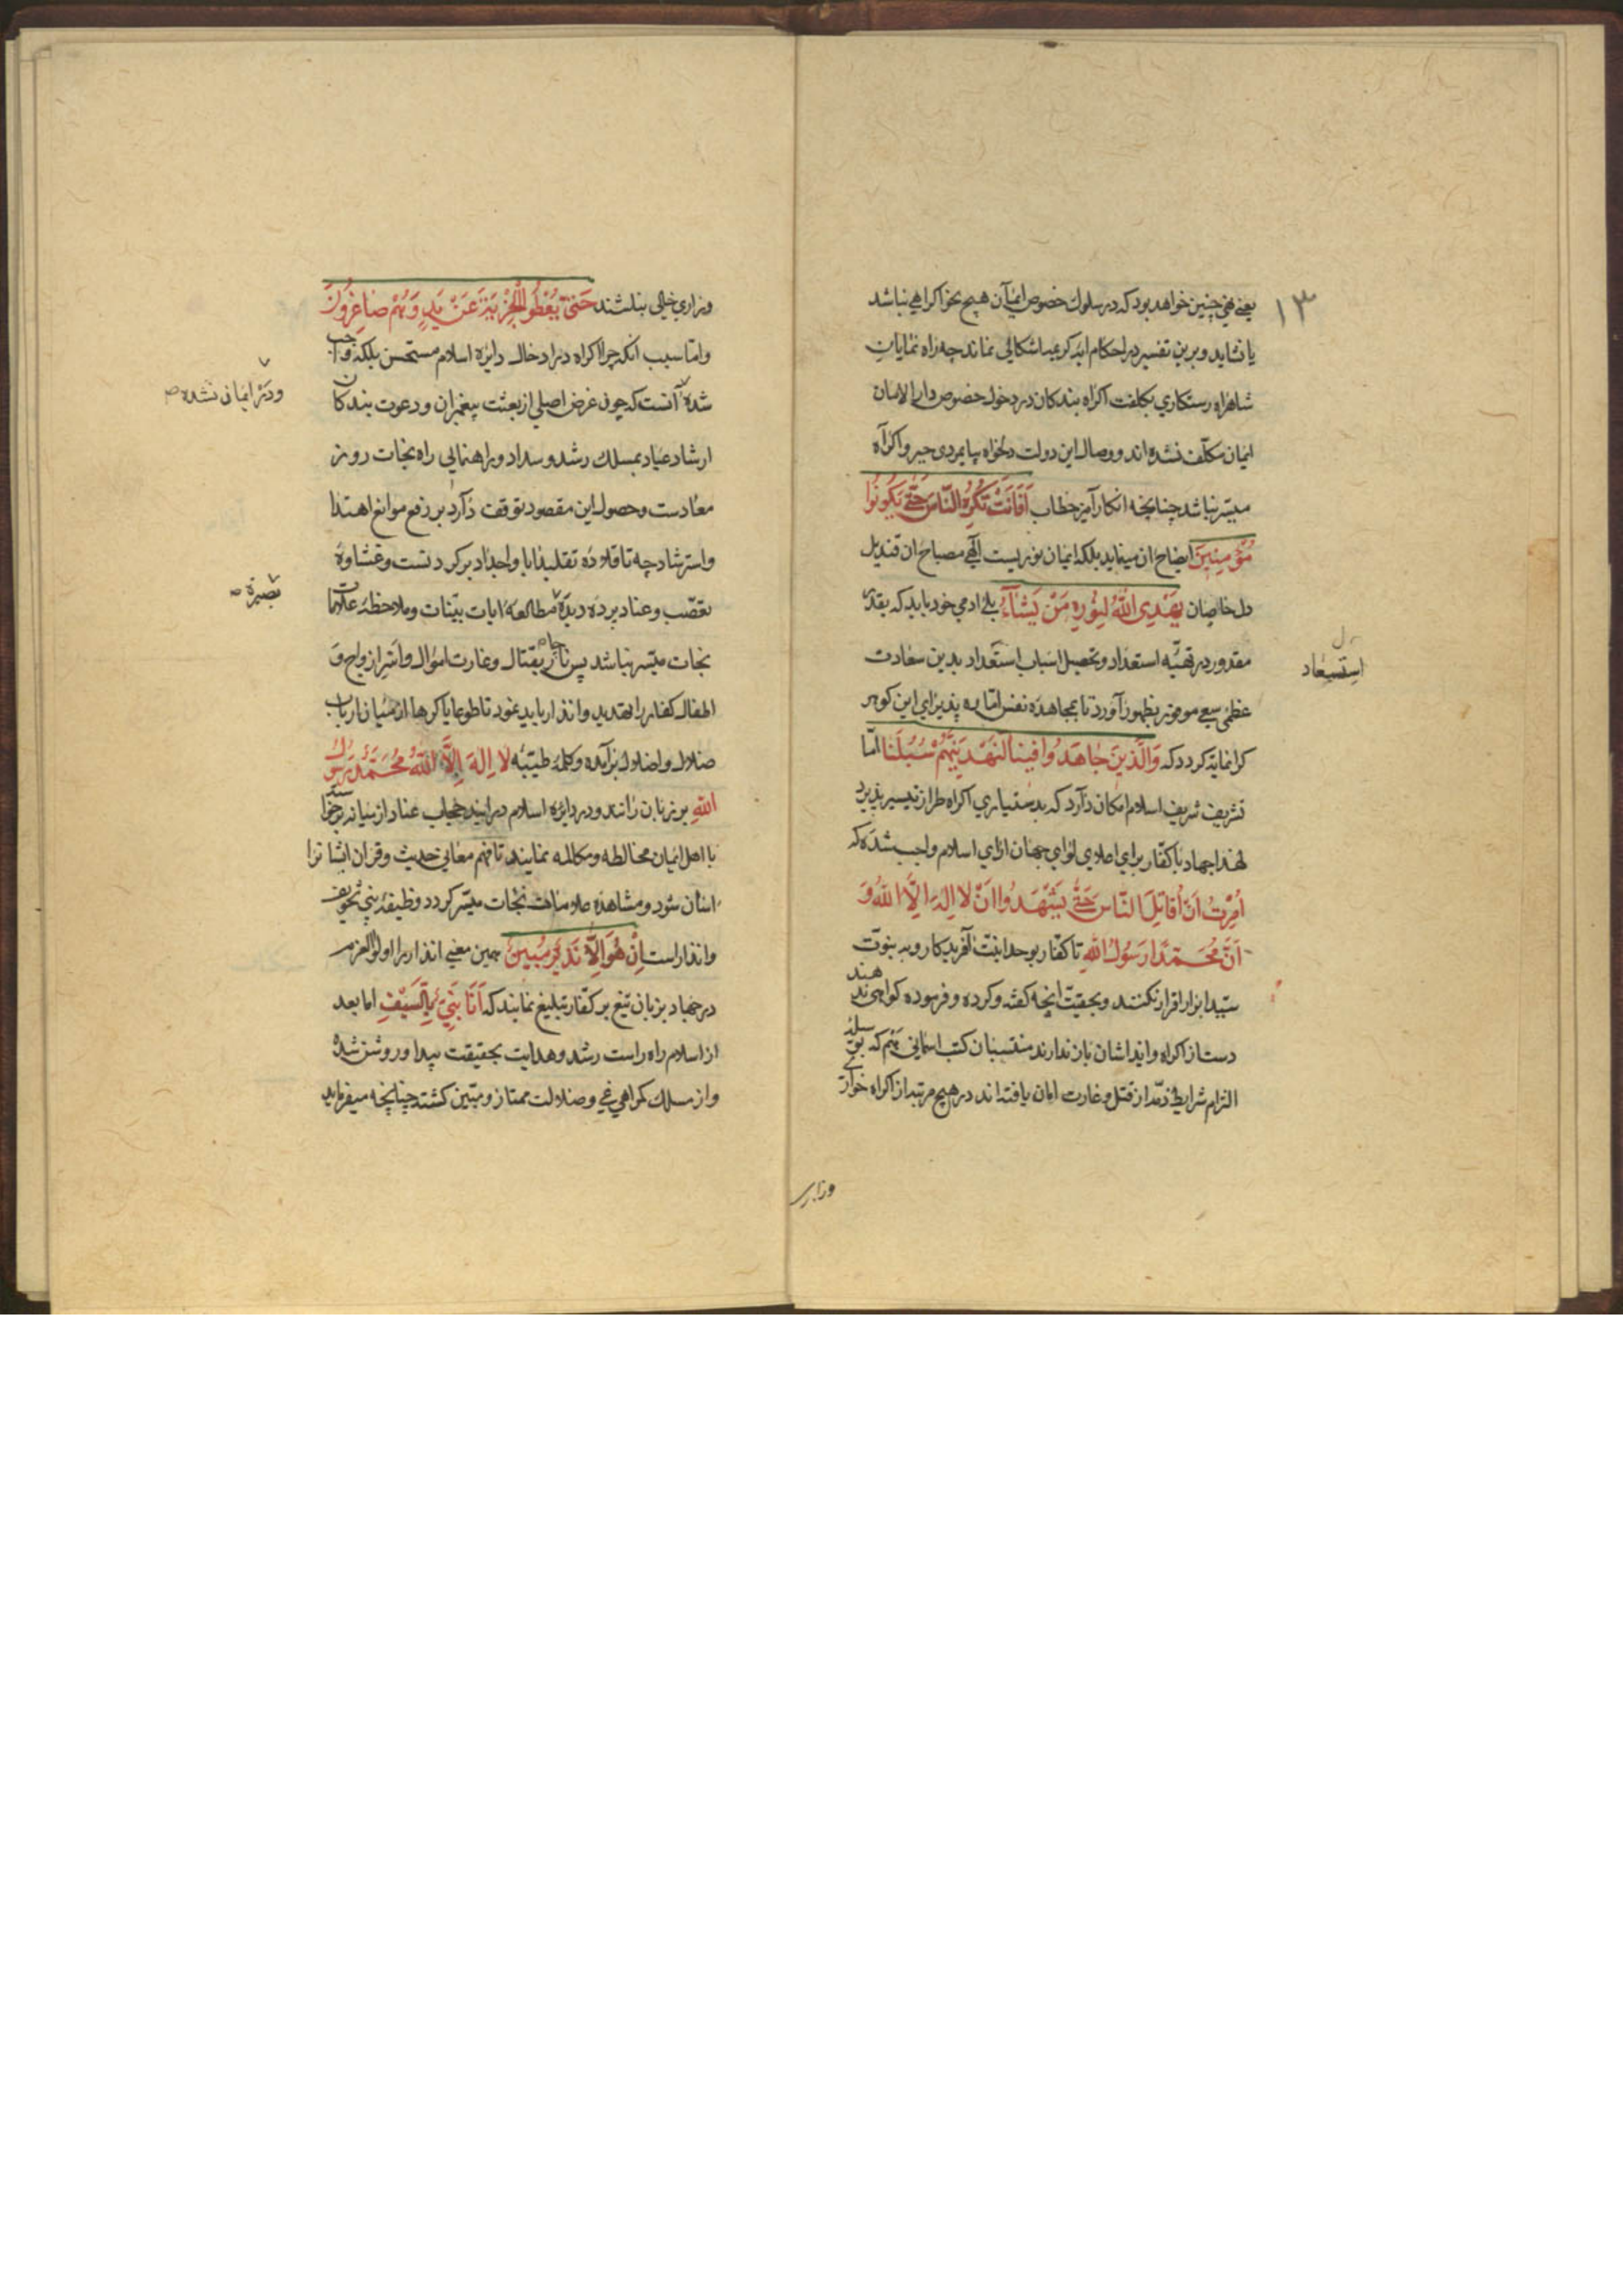 ۱۳
یعنی چنین خواهد بود که در سلوک خصوص ایمان هیچ نحو اکراهی نباشد
یا نشاید و برین تفسیر در احکام آیه کریمه اشکالی نماند چه راه نمایان
شاهراه رستکاری بکلفت اکراه بندکان در دخول خصوص دار الامان
ایمان مکلّف نشده اند و وصال این دولت دلخواه پایمردی جبر و اکراه
میسّر نباشد چنانچه انکار آمیز خطاب اَفَاَنْتَ تُكْرِهُ النَّاسَ حَتّٰى يَكُونُوا
مُؤْمِنِينَ ایضاح ان مینماید بلکه ایمان نوریست الهی مصباح ان قندیل
دل خاصان يَهْدِى اللّٰهُ لِنُورِهِ مَنْ يَشَآءُ بلی ادمی خود باید که بقدر
مقدور در تهیّه استعداد و تحصیل اسباب استعداد بدین سعادت
استسعاد
عظمی سعی موفور بظهور آورد تا بمجاهده نفس امّاره پذیرای این کوهر
کرانمایه کردد که وَالَّذِينَ جَاهَدُوا فِينَا لَنَهْدِيَنَّهُمْ سُبُلَنَا امّا
تشریف شریف اسلام امکان دارد که بدستیاری اکراه طراز تیسیر پذیرد
لهذا جهاد با کفّار برای اعلای لوای جهان ارای اسلام واجب شده که
اُمِرْتُ اَنْ اُقَاتِلَ النَّاسَ حَتّٰى يَشْهَدُوا اَنْ لا اِلٰهَ اِلَّا اللّٰهُ وَ
اَنَّ مُحَمَّدًا رَسُولُ اللّٰهِ تا کفّار بوحدانیّت آفریدکار و به نبوّت
سیّد ابرار اقرار نکنند و بحقیّت انچه کفته و کرده و فرموده کواهی ندهند
دست از اکراه و ایذا اشان باز ندارند منتسبان کتب اسمانی هم که بوسیله
التزام شرایط ذمّه از قتل و غارت امان یافته اند در هیچ مرتبه از اکراه خواری
وزاری
وزاری خالی نباشند حَتّٰى يُعْطُوا الْجِزْيَةَ عَنْ يَدٍ وَهُمْ صَاغِرُونَ
وامّا سبب انکه چرا اکراه در ادخال دایره اسلام مستحسن بلکه واجب
شده آنست که چون غرض اصلی از بعثت پیغمبران و دعوت بندکان
ودر ایمانی نشده صح
ارشاد عباد بمسلک رشد و سداد و راهنمایی راه نجات روز
معادست و حصول این مقصود توقف دارد بر رفع موانع اهتدا
واسترشاد چه تا قلاده تقلید ابا و اجداد بر کردنست و غشاوهٔ
تعصّب و عناد بر ده دیده مطالعهٔ ایات بیّنات و ملاحظهٔ علامات
بصیرة صح
نجات میسّر نباشد پس ناچار بقتال و غارت اموال و اسر ازواج و
اطفال کفار را تهدید و انذار باید نمود تا طوعا یا کرها از میان ارباب
ضلال و اضلال برآمده و کلمهٔ طیّبه لا اِلٰهَ اِلَّا اللّٰهُ مُحَمَّدٌ رَسُولُ
اللّٰهِ بر زبان رانند و در دایره اسلام درایند حجاب عناد از میانه برخیزد
با اهل ایمان مخالطه و مکالمه نمایند تا فهم معانی حدیث و قران ایشانرا
اسان شود و مشاهده علامات نجات میسّر کردد وظیفهٔ نبی تخویف
وانذار است اِنْ هُوَ اِلَّا نَذِيرٌ مُبِينٌ همین معنی انذار را اولو العزم
در جهاد بزبان تیغ بر کفّار تبلیغ نمایند که اَنَا نَبِيٌّ بِالسَّيْفِ اما بعد
از اسلام راه راست رشد و هدایت بحقیقت پیدا و روشن شده
و از مسلک کمراهی غی و ضلالت ممتاز و مبیّن کشته چنانچه میفرماید